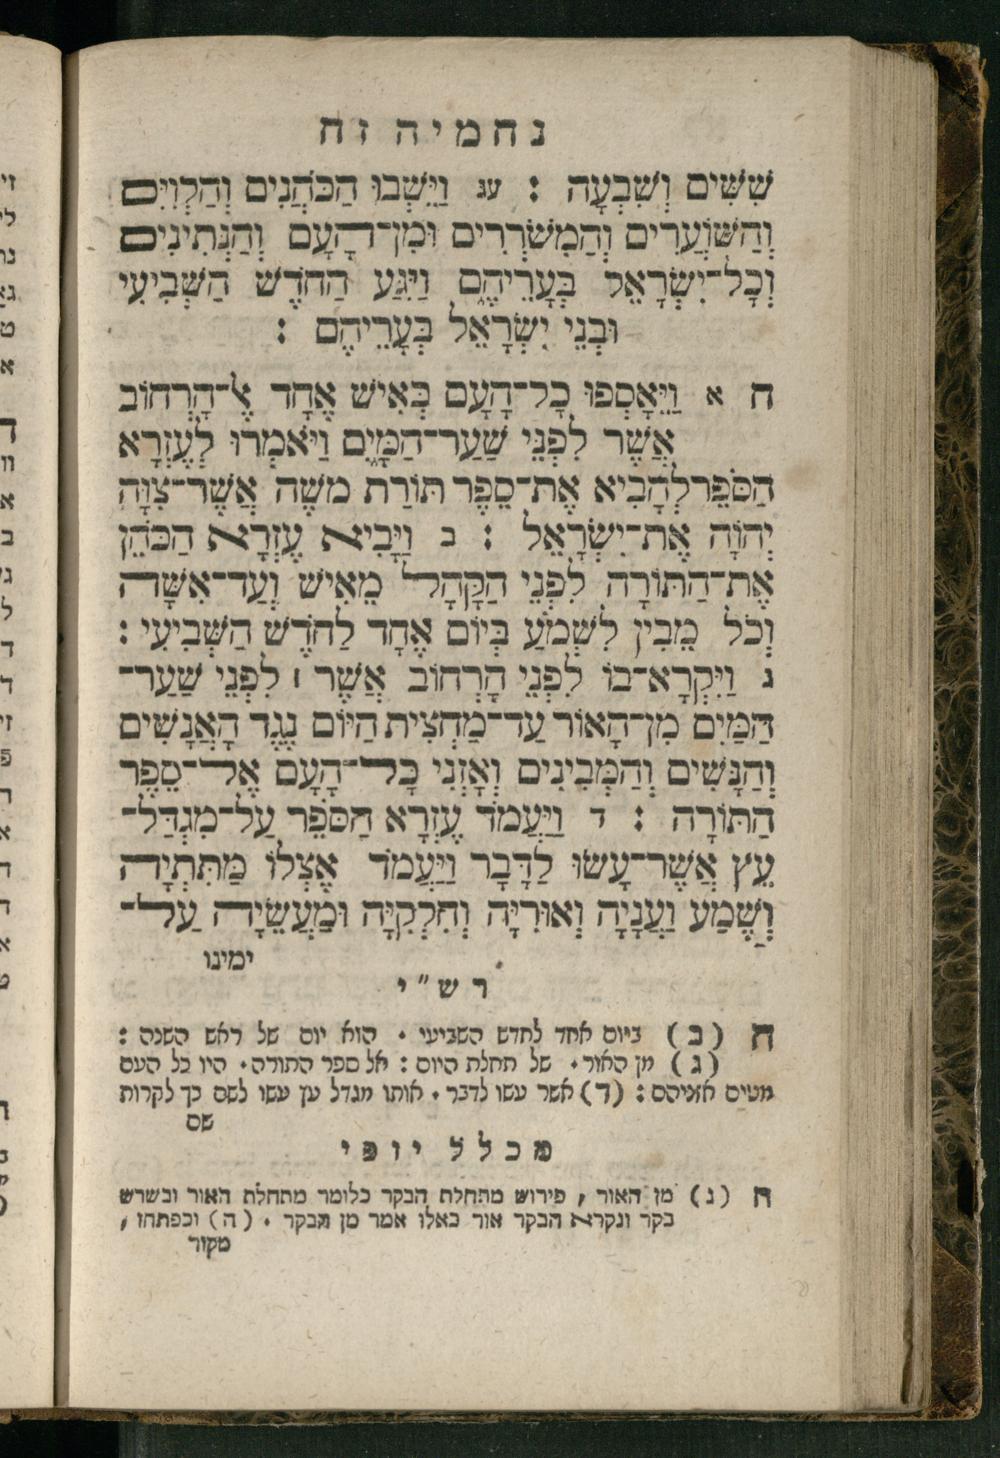 נחמיה ז ח
שִׁשִּׁים וְשִׁבְעָה : עג וַיֵּשְׁבוּ הַכֹּהֲנִים וְהַלְוִיִּם
וְהַשּׁוֹעֲרִים וְהַמְשֹׁרְרִים וּמִן־הָעָם וְהַנְּתִינִים
וְכָל־יִשְׂרָאֵל בְּעָרֵיהֶם וַיִּגַּע הַחֹדֶשׁ הַשְּׁבִיעִי
וּבְנֵי יִשְׂרָאֵל בְּעָרֵיהֶם :
ח א וַיֵּאָסְפוּ כָל־הָעָם כְּאִישׁ אֶחָד אֶל־הָרְחוֹב
אֲשֶׁר לִפְנֵי שַׁעַר־הַמָּיִם וַיֹּאמְרוּ לְעֶזְרָא
הַסֹּפֵר לְהָבִיא אֶת־סֵפֶר תּוֹרַת מֹשֶׁה אֲשֶׁר־צִוָּה
יְהוָֹה אֶת־יִשְׂרָאֵל : ב וַיָּבִיא עֶזְרָא הַכֹּהֵן
אֶת־הַתּוֹרָה לִפְנֵי הַקָּהָל מֵאִישׁ וְעַד־אִשָּׁה
וְכֹל מֵבִין לִשְׁמֹעַ בְּיוֹם אֶחָד לַחֹדֶשׁ הַשְּׁבִיעִי :
ג וַיִּקְרָא־בוֹ לִפְנֵי הָרְחוֹב אֲשֶׁר ׀ לִפְנֵי שַׁעַר־
הַמַּיִם מִן־הָאוֹר עַד־מַחֲצִית הַיּוֹם נֶגֶד הָאֲנָשִׁים
וְהַנָּשִׁים וְהַמְּבִינִים וְאָזְנֵי כָל־הָעָם אֶל־סֵפֶר
הַתּוֹרָה : ד וַיַּעֲמֹד עֶזְרָא הַסֹּפֵר עַל־מִגְדַּל־
עֵץ אֲשֶׁר־עָשׂוּ לַדָּבָר וַיַּעֲמֹד אֶצְלוֹ מַתִּתְיָה
וְשֶׁמַע וַעֲנָיָה וְאוּרִיָּה וְחִלְקִיָּה וּמַעֲשֵׂיָה עַל־
ימינו
רש"י
ח (ב) ביום אחד לחדש השביעי . הוא יום של ראש השנה :
(ג) מן האור . של תחלת היום : אל ספר התורה . היו כל העם
מטים אזניהם : (ד) אשר עשו לדבר . אותו מגדל עץ עשו לשם כך לקרות
שם
מכלל יופי
ח (ג) מן האור , פירוש מתחלת הבקר כלומר מתחלת האור ובשרש
בקר ונקרא הבקר אור כאלו אמר מן הבקר . (ה) וכפתחו ,
מקור